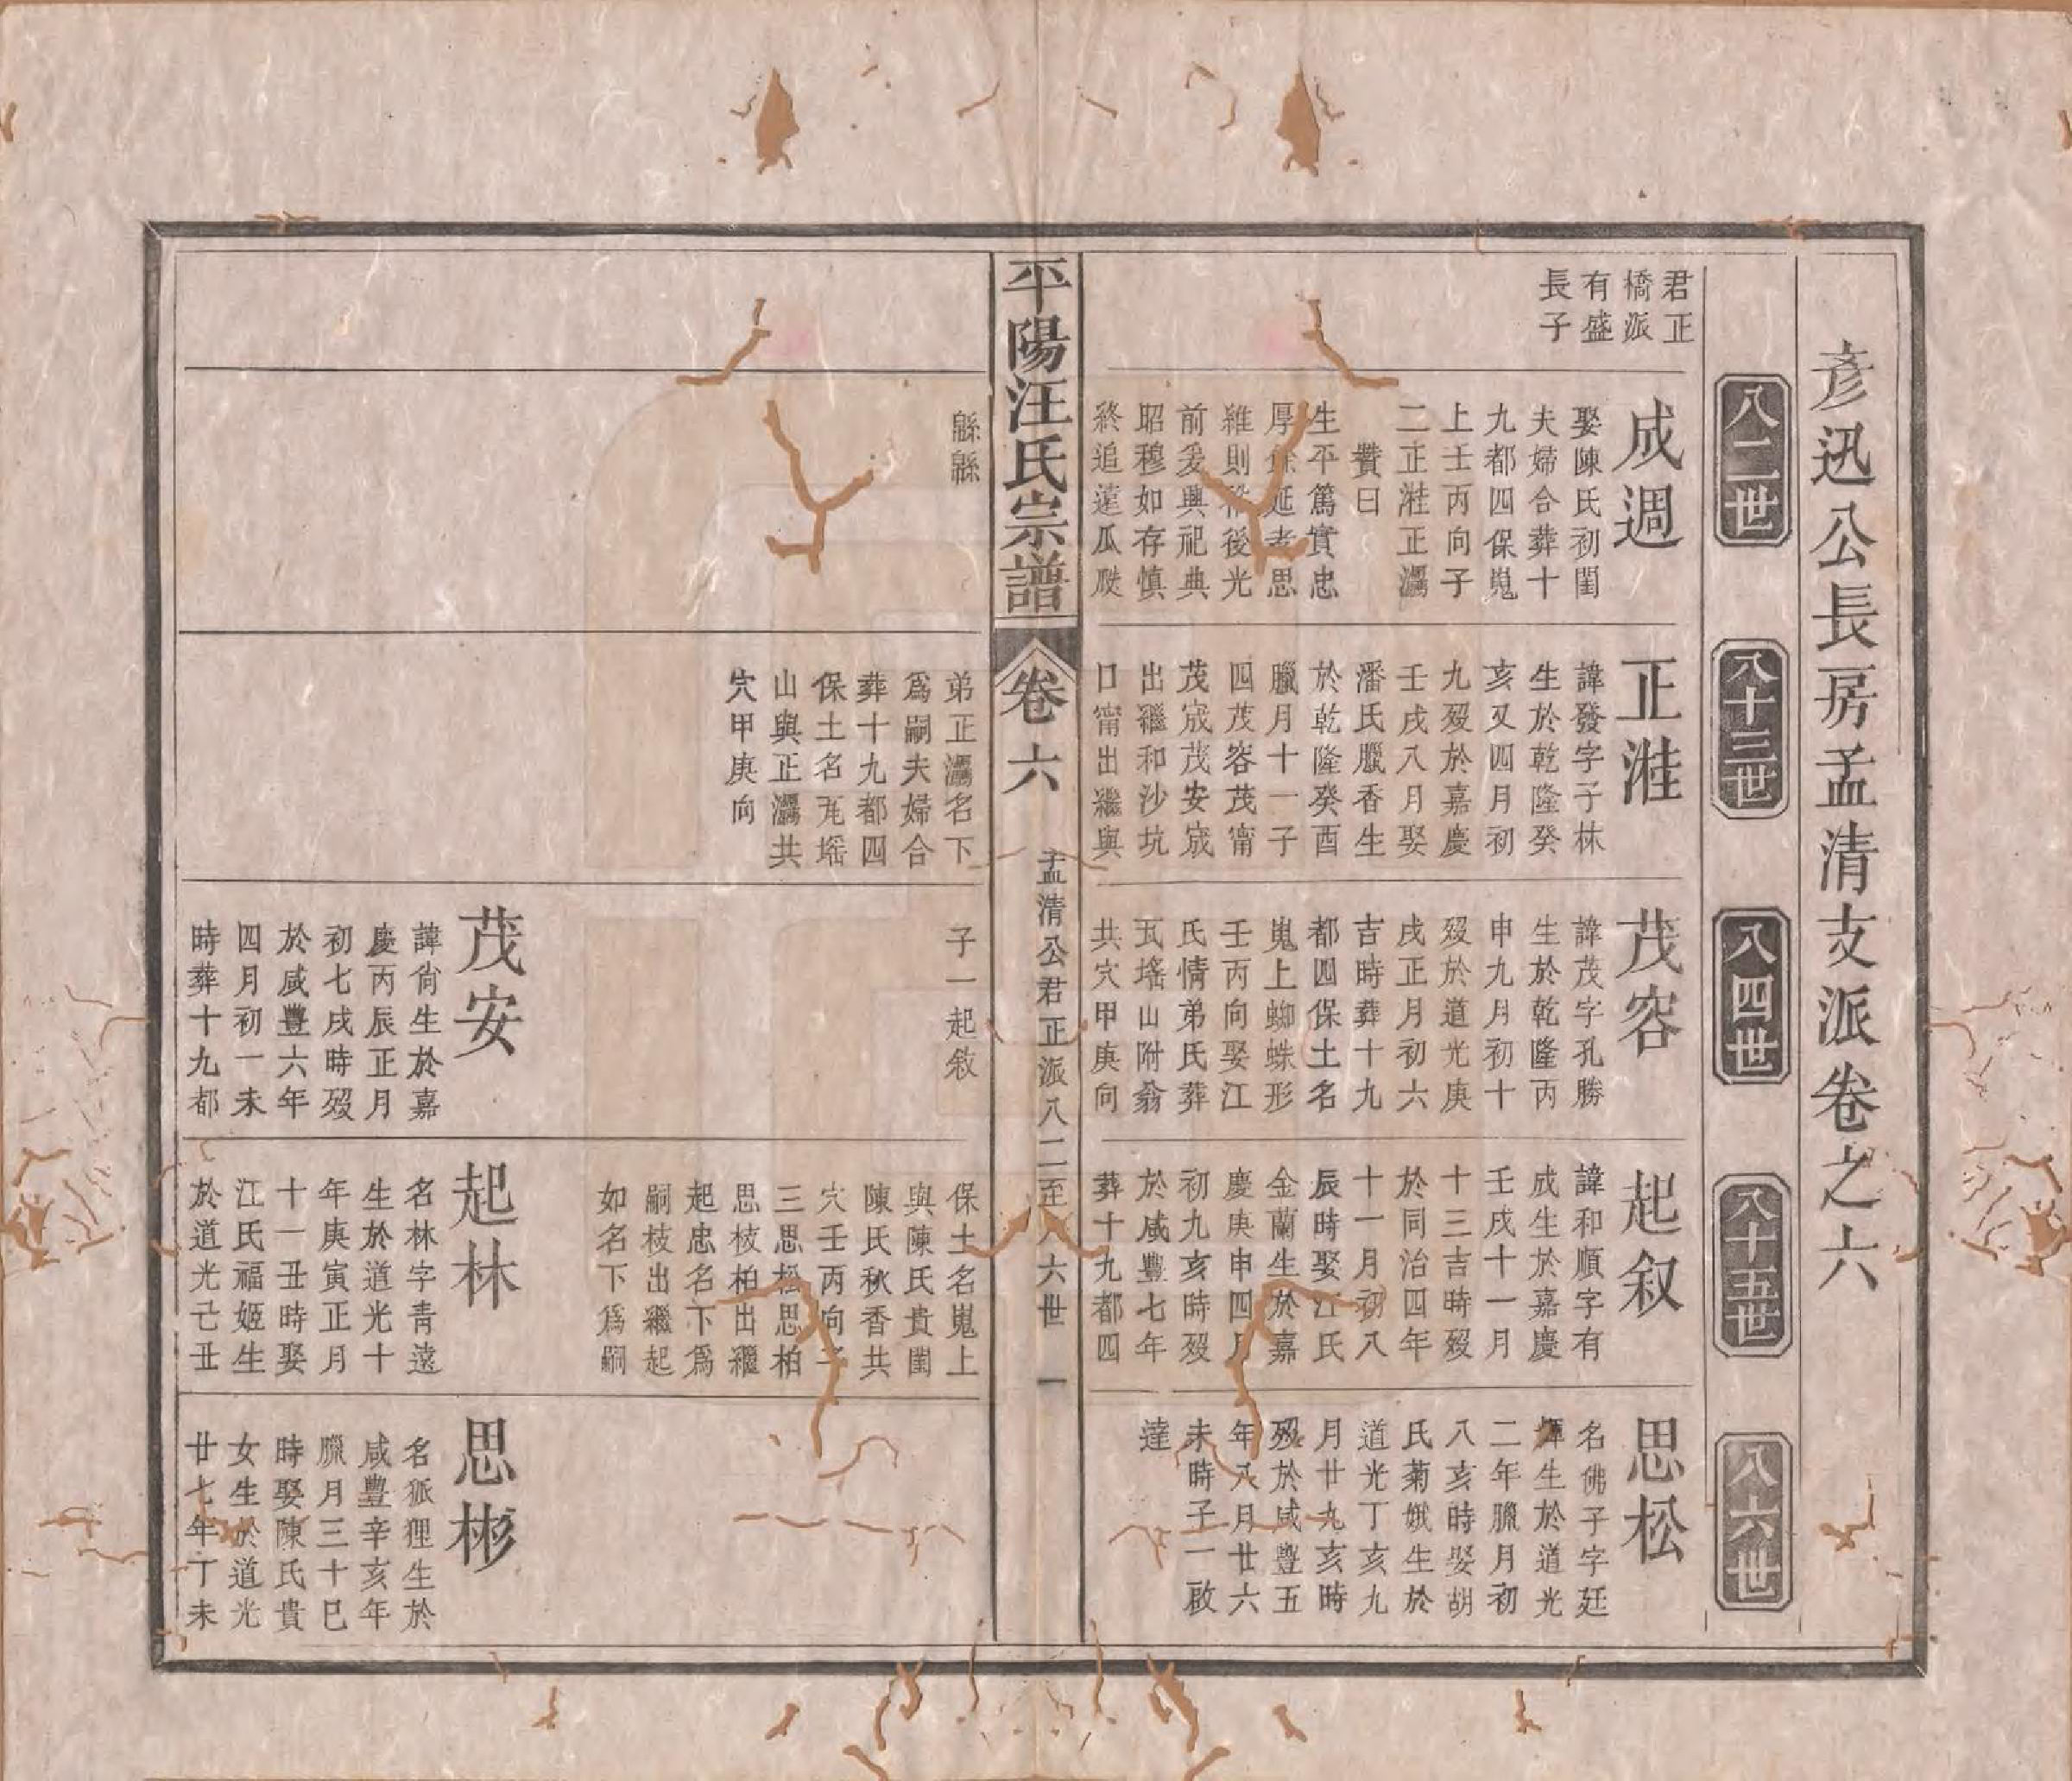 彦迅公長房孟清支派卷之六
八二世
八十三世
八四世
八十五世
八六世
君正
橋派
有盛
長子
成週
娶陳氏初閨
夫婦合葬十
九都四保嵬
上壬丙向子
二正溎正灟
贊曰
生平篤實忠
厚餘延孝思
維則裕後光
前爰興祀典
昭穆如存慎
終追遠瓜瓞
正溎
諱發字子林
生於乾隆癸
亥又四月初
九歿於嘉慶
壬戌八月娶
潘氏臘香生
於乾隆癸酉
臘月十一子
四茂容茂甯
茂宬茂安宬
出繼和沙坑
口甯出繼與
茂容
諱茂字孔勝
生於乾隆丙
申九月初十
歿於道光庚
戌正月初六
吉時葬十九
都四保土名
嵬上蜘蛛形
壬丙向娶江
氏情弟氏葬
瓦塎山附翁
共穴甲庚向
起叙
諱和順字有
成生於嘉慶
壬戌十一月
十三吉時歿
於同治四年
十一月初八
辰時娶江氏
金蘭生於嘉
慶庚申四月
初九亥時歿
於咸豐七年
葬十九都四
思松
名佛子字廷
煇生於道光
二年臘月初
八亥時娶胡
氏菊娥生於
道光丁亥九
月廿九亥時
歿於咸豐五
年八月廿六
未時子一啟
達
平陽汪氏宗譜
卷六
孟清公君正派八二至八六世
一
緜緜
弟正灟名下
爲嗣夫婦合
葬十九都四
保土名瓦塎
山與正灟共
穴甲庚向
子一起敘
保土名嵬上
與陳氏貴閨
陳氏秋香共
穴壬丙向子
三思松思柏
思枝柏出繼
起忠名下爲
嗣枝出繼起
如名下爲嗣
茂安
諱尙生於嘉
慶丙辰正月
初七戌時歿
於咸豐六年
四月初一未
時葬十九都
起林
名林字青遠
生於道光十
年庚寅正月
十一丑時娶
江氏福姬生
於道光己丑
思彬
名狐狸生於
咸豐辛亥年
臘月三十巳
時娶陳氏貴
女生於道光
廿七年丁未